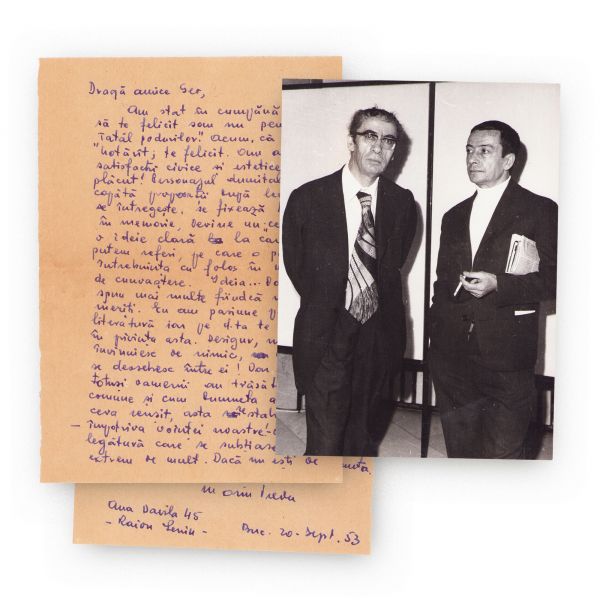 Dragă amice Geo,
Am stat în cumpănă
să te felicit sau nu pen
"Tatăl podurilor". Acum, că
"hotărît", te felicit. Am a
satisfacții civice și estetice
plăcut! Personajul dumital
capătă proporții după le
se întregește, se fixează
în memorie, devine un "ce
o ideie clară la car
putem referi, pe care o p
întrebuința cu folos în
de cunoaștere. Ideia... Do
spun mai multe fiindcă
meriți. Eu am pasiune p
literatură iar pe d-ta te
în privința asta. Desigur, n
învinuiesc de nimic,
se deosebesc între ei! Dar
totuși oamenii au trăsăt
comune și cum dumneta a
ceva reușit, asta stab
– împotriva voinței noastre –
legătură care se subția
extrem de mult. Dacă nu ești de
Marin Preda
Ana Davila 45
- Raion Lenin -
Buc. 20 - Sept. 53